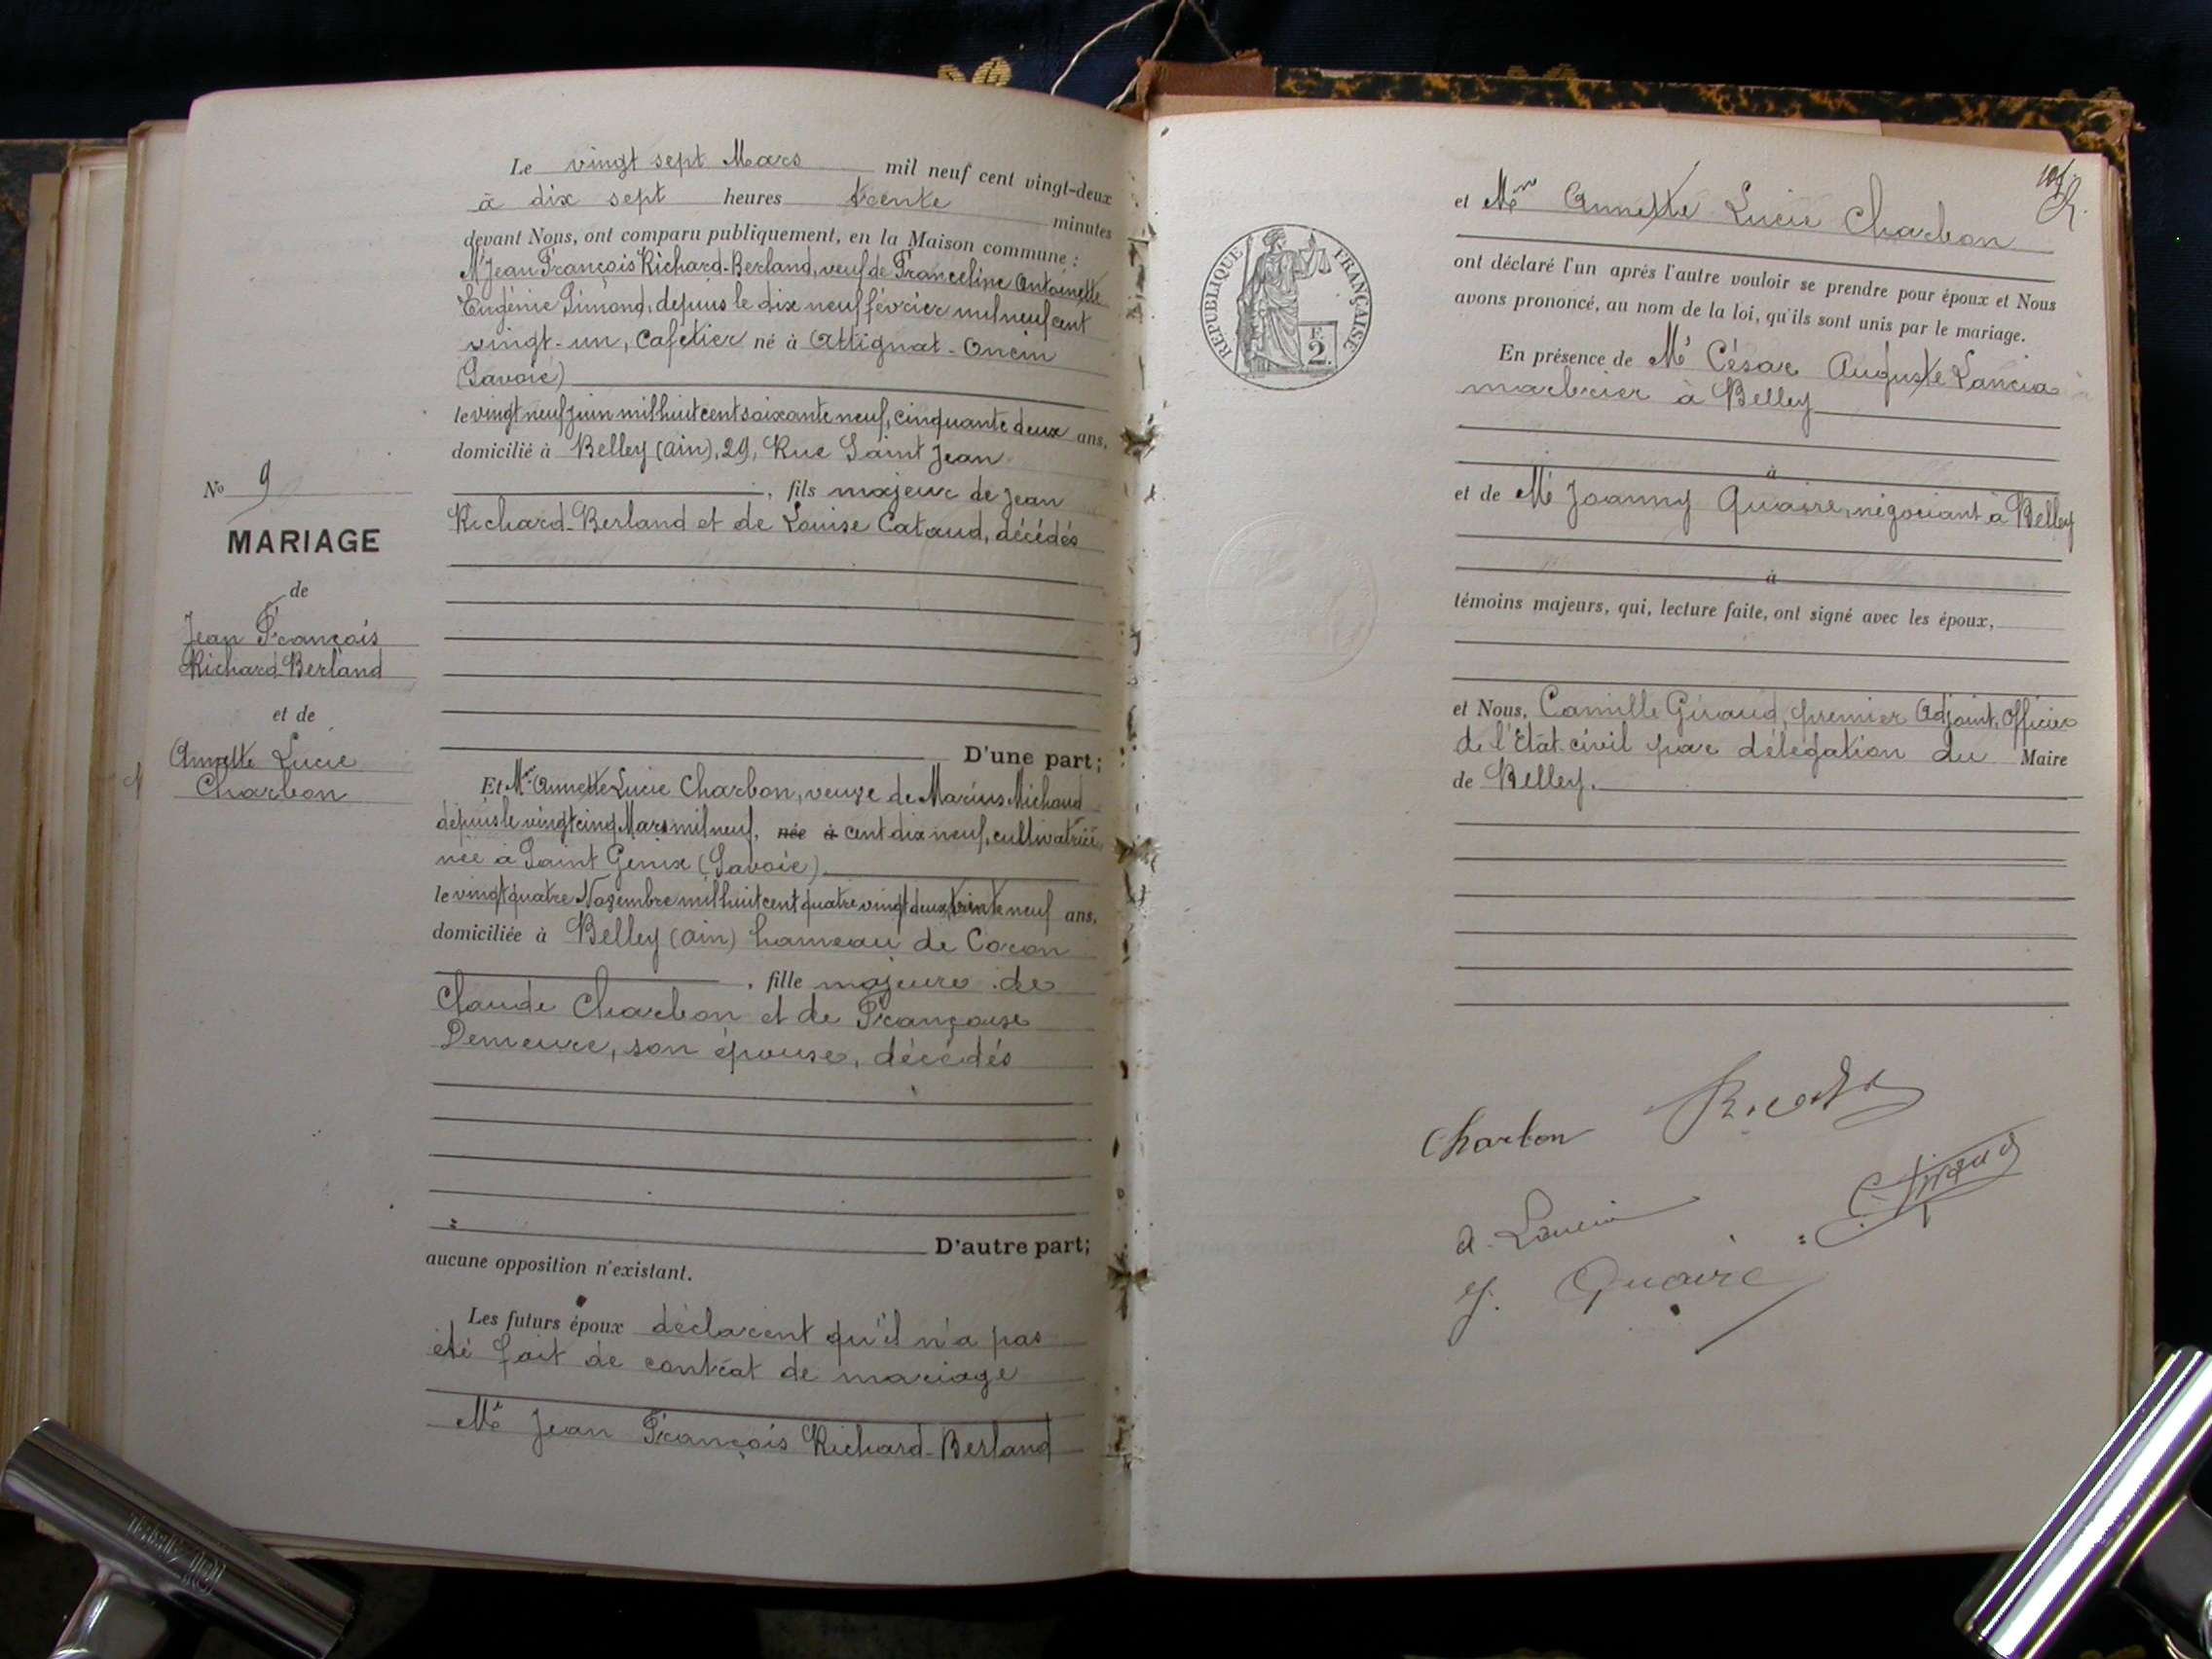 Le vingt sept Mars mil neuf cent vingt-deux
à dix sept heures trente minutes
devant Nous, ont comparu publiquement, en la Maison commune :
Mr Jean François Richard-Berland, veuf de Franceline Antoinette
Eugénie Simond, depuis le dix neuf février mil neuf cent
vingt-un, Cafetier né à Attignat-Oncin
(Savoie)
le vingt neuf Juin mil huit cent soixante neuf, cinquante deux ans,
domicilié à Belley (Ain), 29, Rue Saint Jean
, fils majeur de Jean
Richard-Berland et de Louise Cataud, décédés
No 9
MARIAGE
de
Jean François
Richard-Berland
et de
Annette Lucie
Charbon
D'une part;
Et Mme Annette Lucie Charbon, veuve de Marius Michaud
depuis le vingt cinq Mars mil neuf, née à cent dix neuf, cultivatrice,
née à Saint Genix (Savoie)
le vingt quatre Novembre mil huit cent quatre vingt deux, trente neuf ans,
domiciliée à Belley (Ain) hameau de Coron
, fille majeure de
Claude Charbon et de Françoise
Demeure, son épouse, décédés
D'autre part;
aucune opposition n'existant.
Les futurs époux déclarent qu'il n'a pas
été fait de contrat de mariage
Mr Jean François Richard-Berland
REPUBLIQUE FRANÇAISE
2
et Mme Annette Lucie Charbon
ont déclaré l'un après l'autre vouloir se prendre pour époux et Nous
avons prononcé, au nom de la loi, qu'ils sont unis par le mariage.
En présence de Mr César Auguste Lancia
marbrier à Belley
à
et de Mr Joanny Quaire, négociant à Belley
à
témoins majeurs, qui, lecture faite, ont signé avec les époux,
et Nous, Camille Giraud, premier Adjoint, Officier
de l'État-civil par délégation du Maire
de Belley.
Charbon
C. Giraud
A. Lancia
J. Quaire